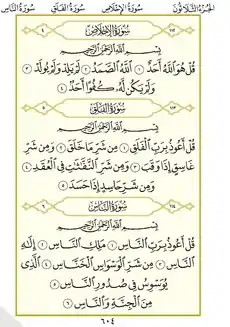 الجزء الثلاثون سورة الإخلاص سورة الفلق سورة الناس
١١٢ سورة الإخلاص ٤
بسم الله الرحمن الرحيم
قُلْ هُوَ ٱللَّهُ أَحَدٌ ١ ٱللَّهُ ٱلصَّمَدُ ٢ لَمْ يَلِدْ وَلَمْ يُولَدْ ٣
وَلَمْ يَكُن لَّهُۥ كُفُوًا أَحَدٌۢ ٤
١١٣ سورة الفلق ٥
بسم الله الرحمن الرحيم
قُلْ أَعُوذُ بِرَبِّ ٱلْفَلَقِ ١ مِن شَرِّ مَا خَلَقَ ٢ وَمِن شَرِّ
غَاسِقٍ إِذَا وَقَبَ ٣ وَمِن شَرِّ ٱلنَّفَّٰثَٰتِ فِى ٱلْعُقَدِ ٤
وَمِن شَرِّ حَاسِدٍ إِذَا حَسَدَ ٥
١١٤ سورة الناس ٦
بسم الله الرحمن الرحيم
قُلْ أَعُوذُ بِرَبِّ ٱلنَّاسِ ١ مَلِكِ ٱلنَّاسِ ٢ إِلَٰهِ
ٱلنَّاسِ ٣ مِن شَرِّ ٱلْوَسْوَاسِ ٱلْخَنَّاسِ ٤ ٱلَّذِى
يُوَسْوِسُ فِى صُدُورِ ٱلنَّاسِ ٥
مِنَ ٱلْجِنَّةِ وَٱلنَّاسِ ٦
٦٠٤